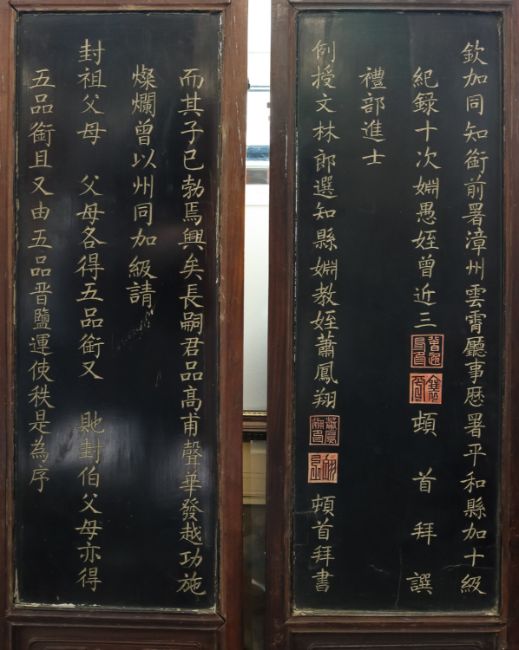 而其子已勃焉興矣長嗣君品髙甫聲華發越功施
燦爛曾以州同加級請
封祖父母 父母各得五品銜又 貤封伯父母亦得
五品銜且又由五品晉鹽運使秩是為序
欽加同知銜前署漳州雲霄廳事歴署平和縣加十級
紀録十次婣愚姪曾近三 頓首拜譔
禮部進士
例授文林郎選知縣婣教姪蕭鳳翔 頓首拜書